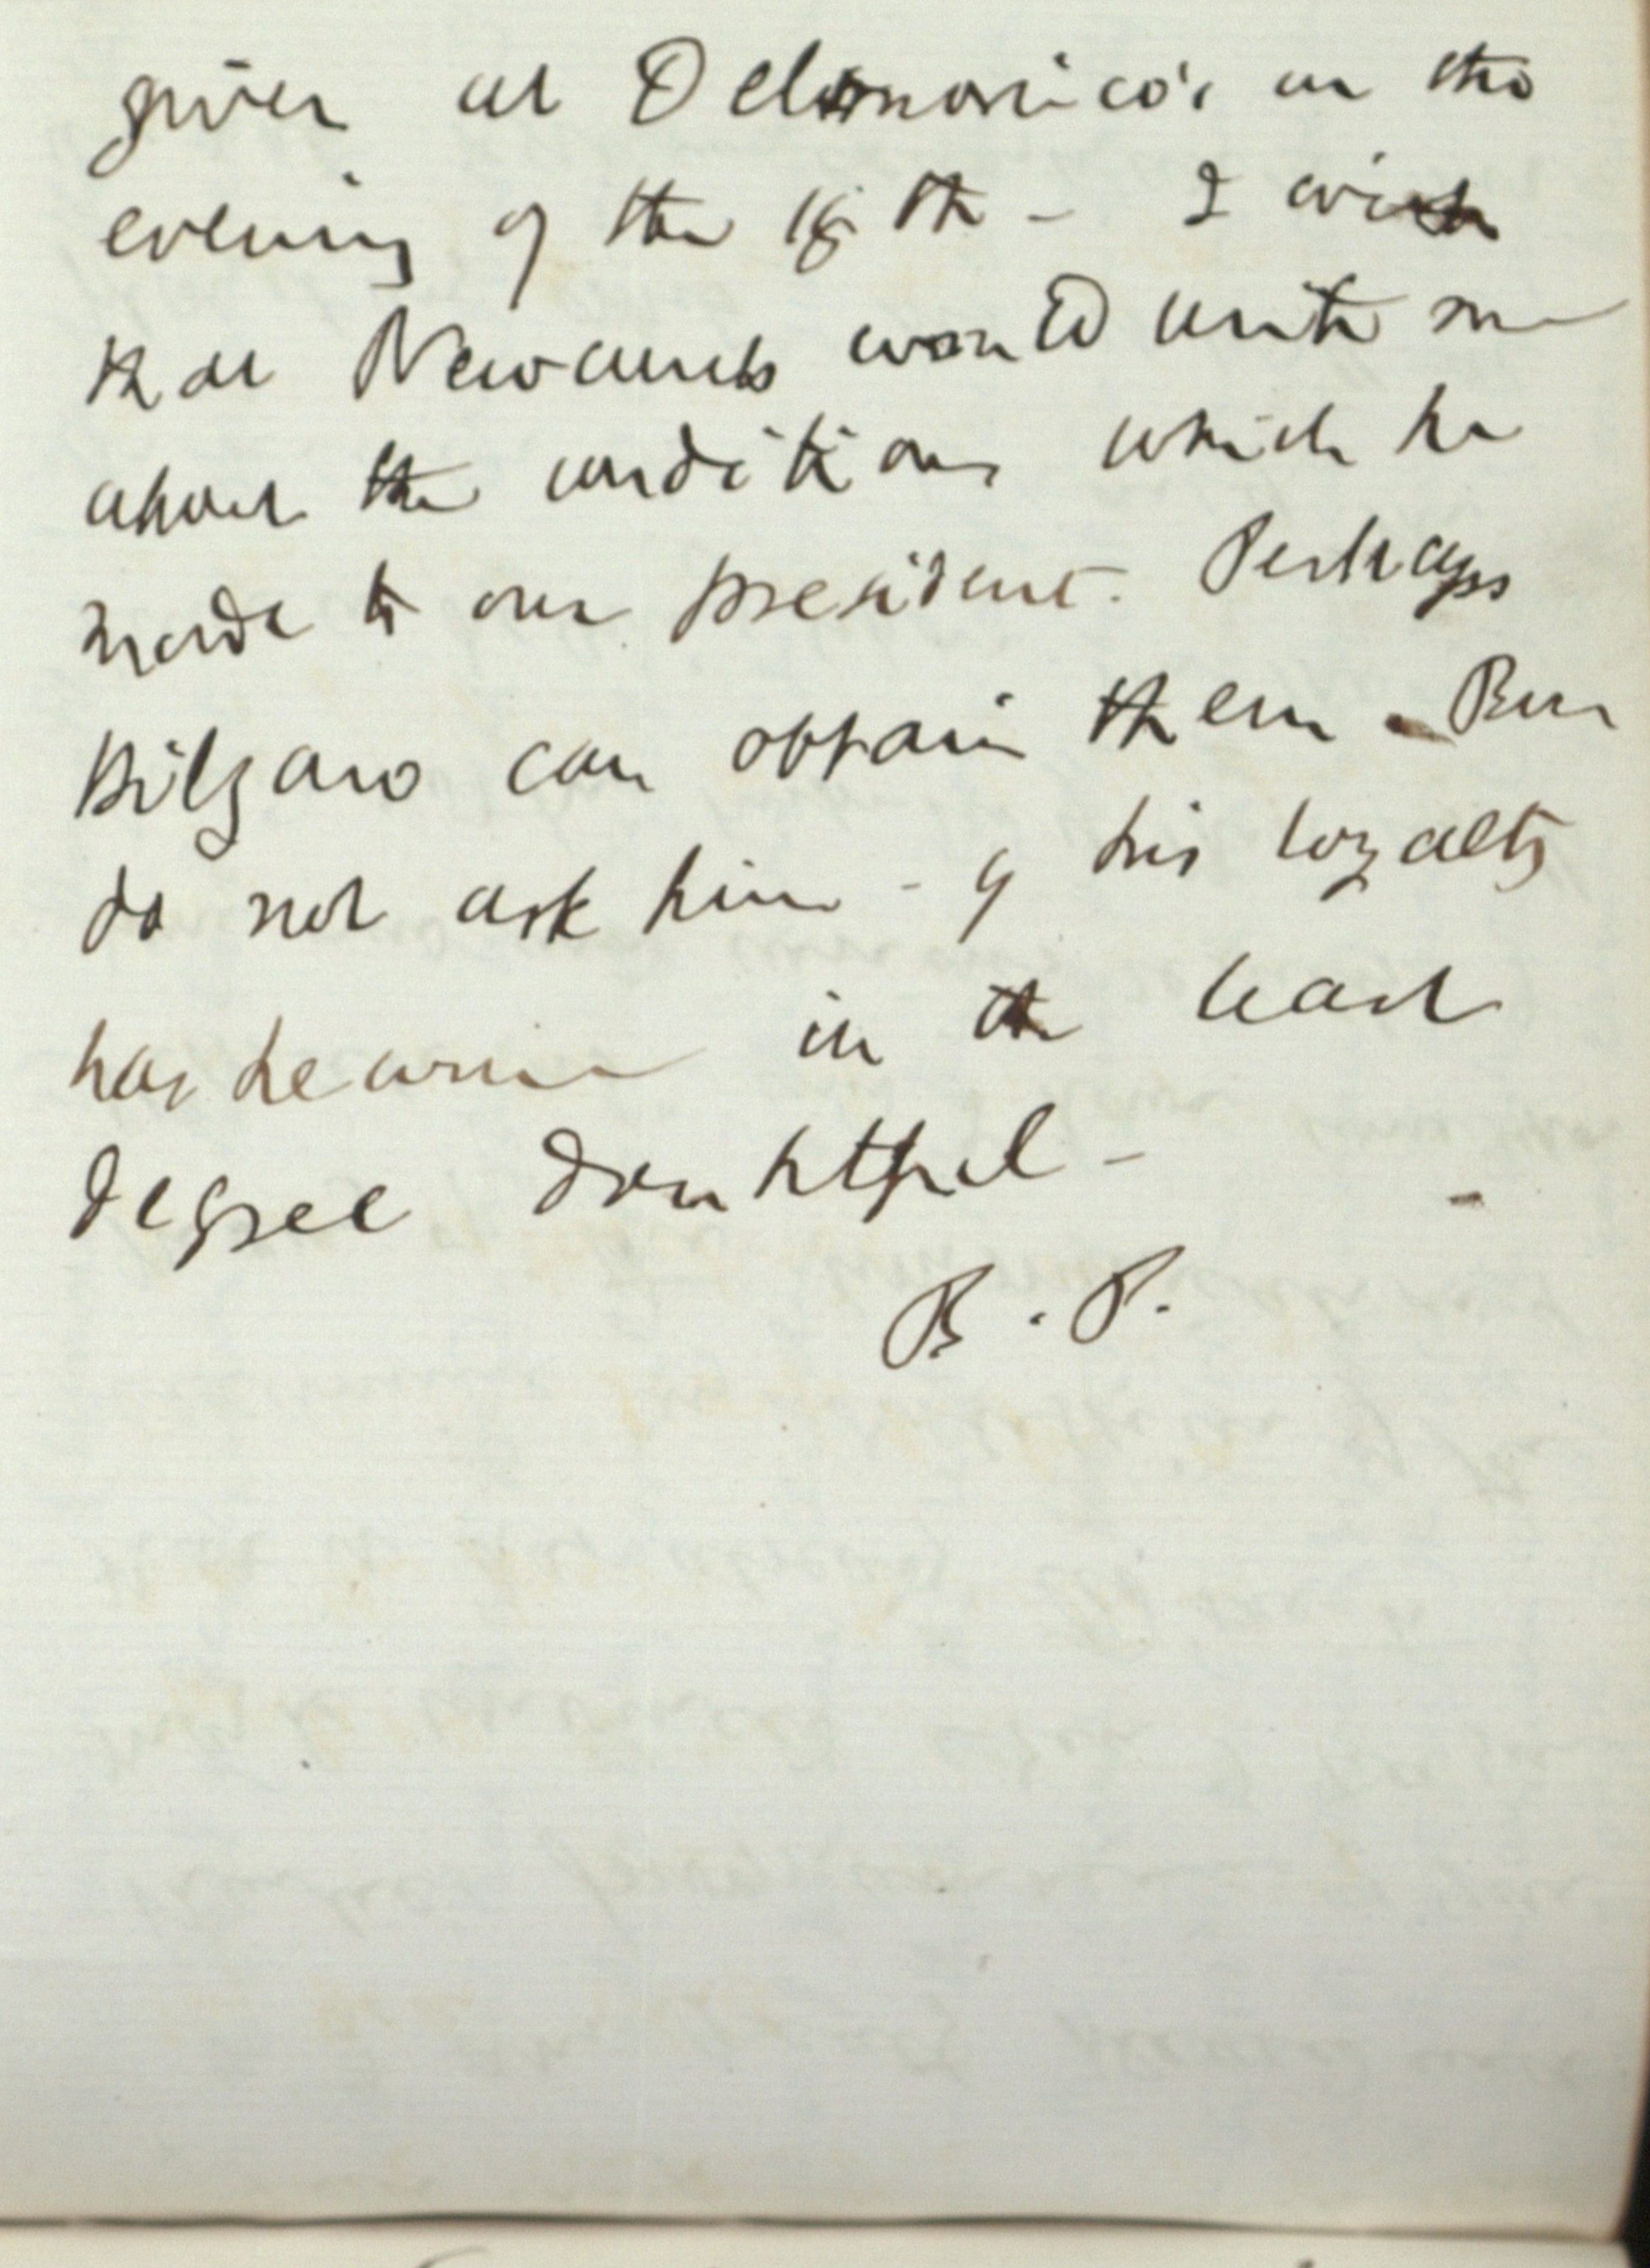 given at Delmonico's on the
evening of the 18th - I wish
that Newcomb would write me
about the conditions which he
made to our president. Perhaps
Hilgard can obtain them - But
do not ask him - if his loyalty
has become in the least
degree doubtful -
B. P.